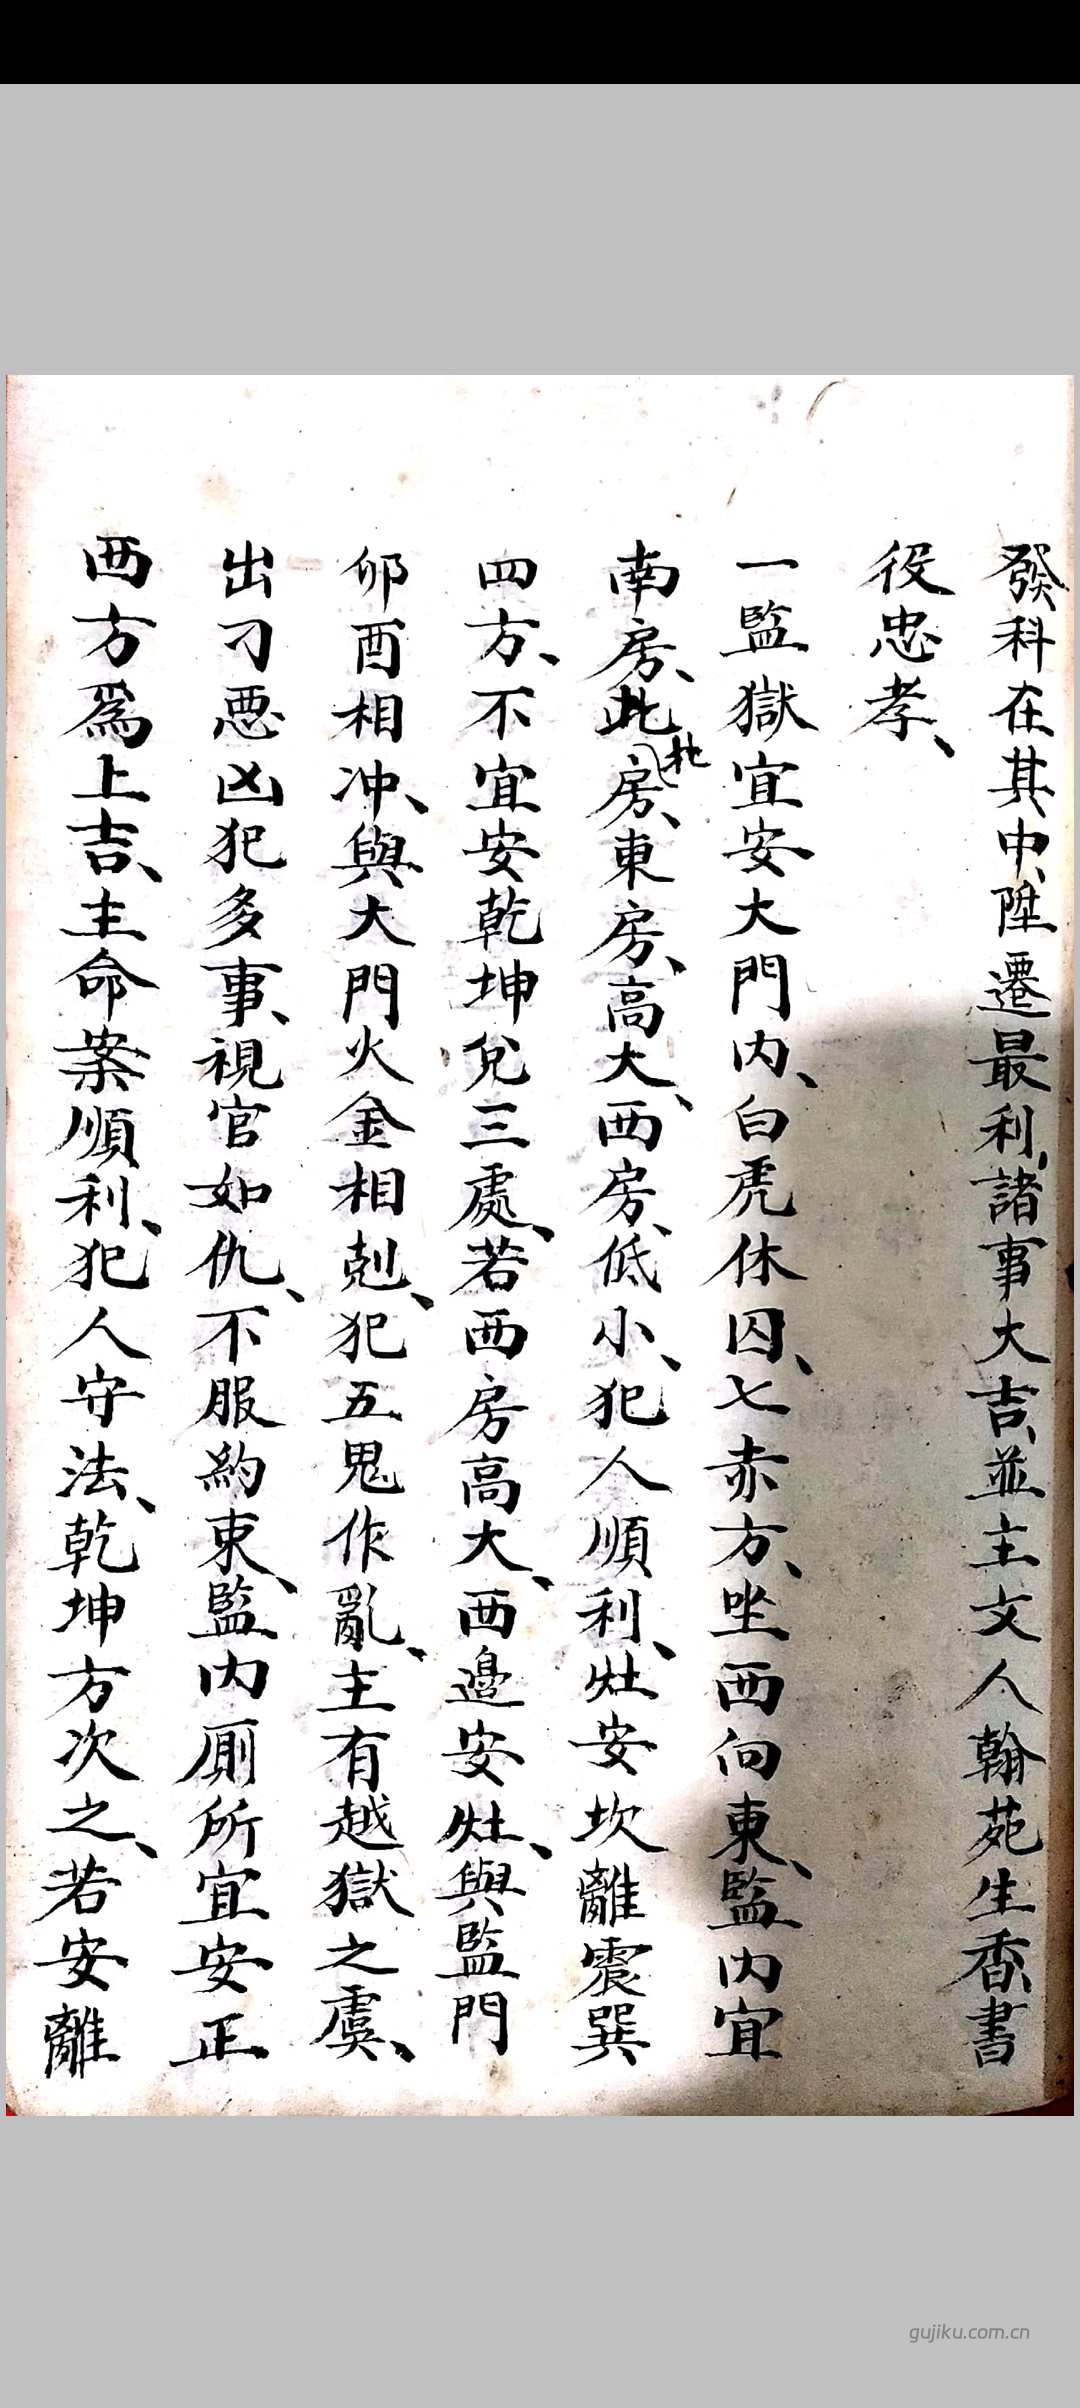 發科在其中、陞遷最利、諸事大吉、並主文人翰苑生香、書
役忠孝、
一監獄宜安大門内、白虎休囚、七赤方、坐西向東、監内宜
南房、此北房、東房、高大、西房、低小、犯人順利、灶安坎離震巽
四方、不宜安乾坤兌三處、若西房高大、西邊安灶、與監門
卯酉相冲、與大門火金相剋、犯五鬼作亂、主有越獄之虞、
出刁惡凶犯多事、視官如仇、不服約束、監内厠所宜安正
西方爲上吉、主命案順利、犯人守法、乾坤方次之、若安離
gujiku.com.cn